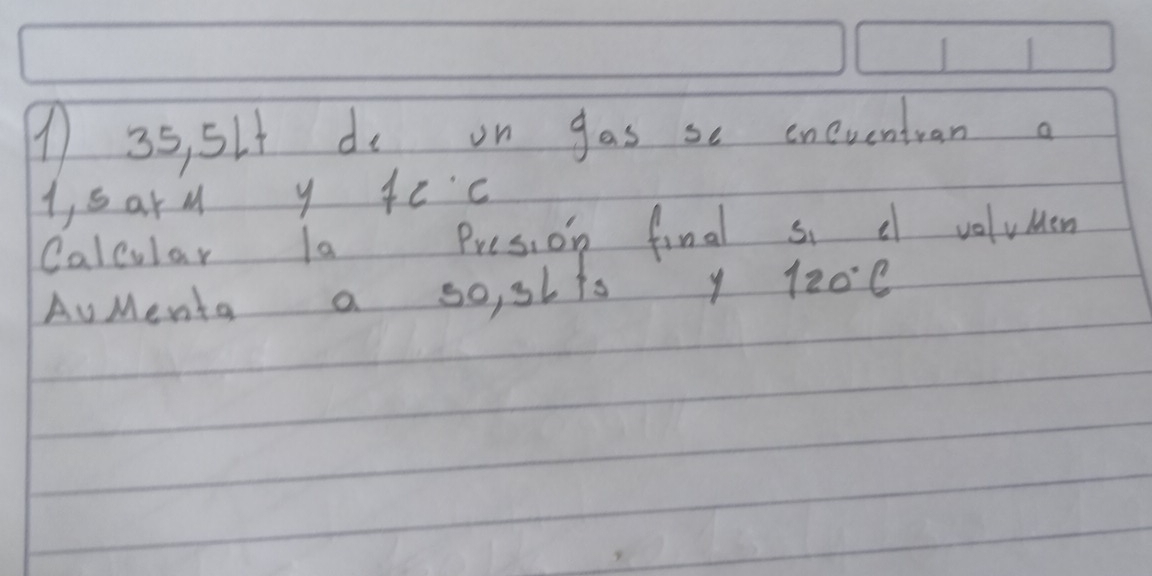 1) 35,5Lt de un gas se encuentran a
1,5 atM y °C
Calcular la Presión final si el voluMen
AuMenta a 50,5Lts y 120°C